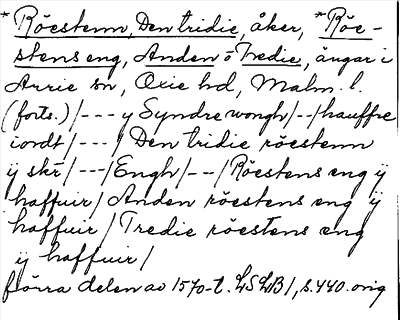 * Röestenn, Den tridie, åker, * Röe-
stens eng, Anden ö Tredie, ängar i
Arrie sn, Oxie hd, Malm. l.
(forts.) /---y Syndre wongh/--/hauffre
iordt/---/Den tridie röestenn
ÿ skr/---/Engh/--/Röestens eng ÿ
haffuir/Anden röestens eng ÿ
haffuir/Tredie röestens eng
ÿ haffuir/
förra delen av 1570-t. LSLB1, s. 440. orig